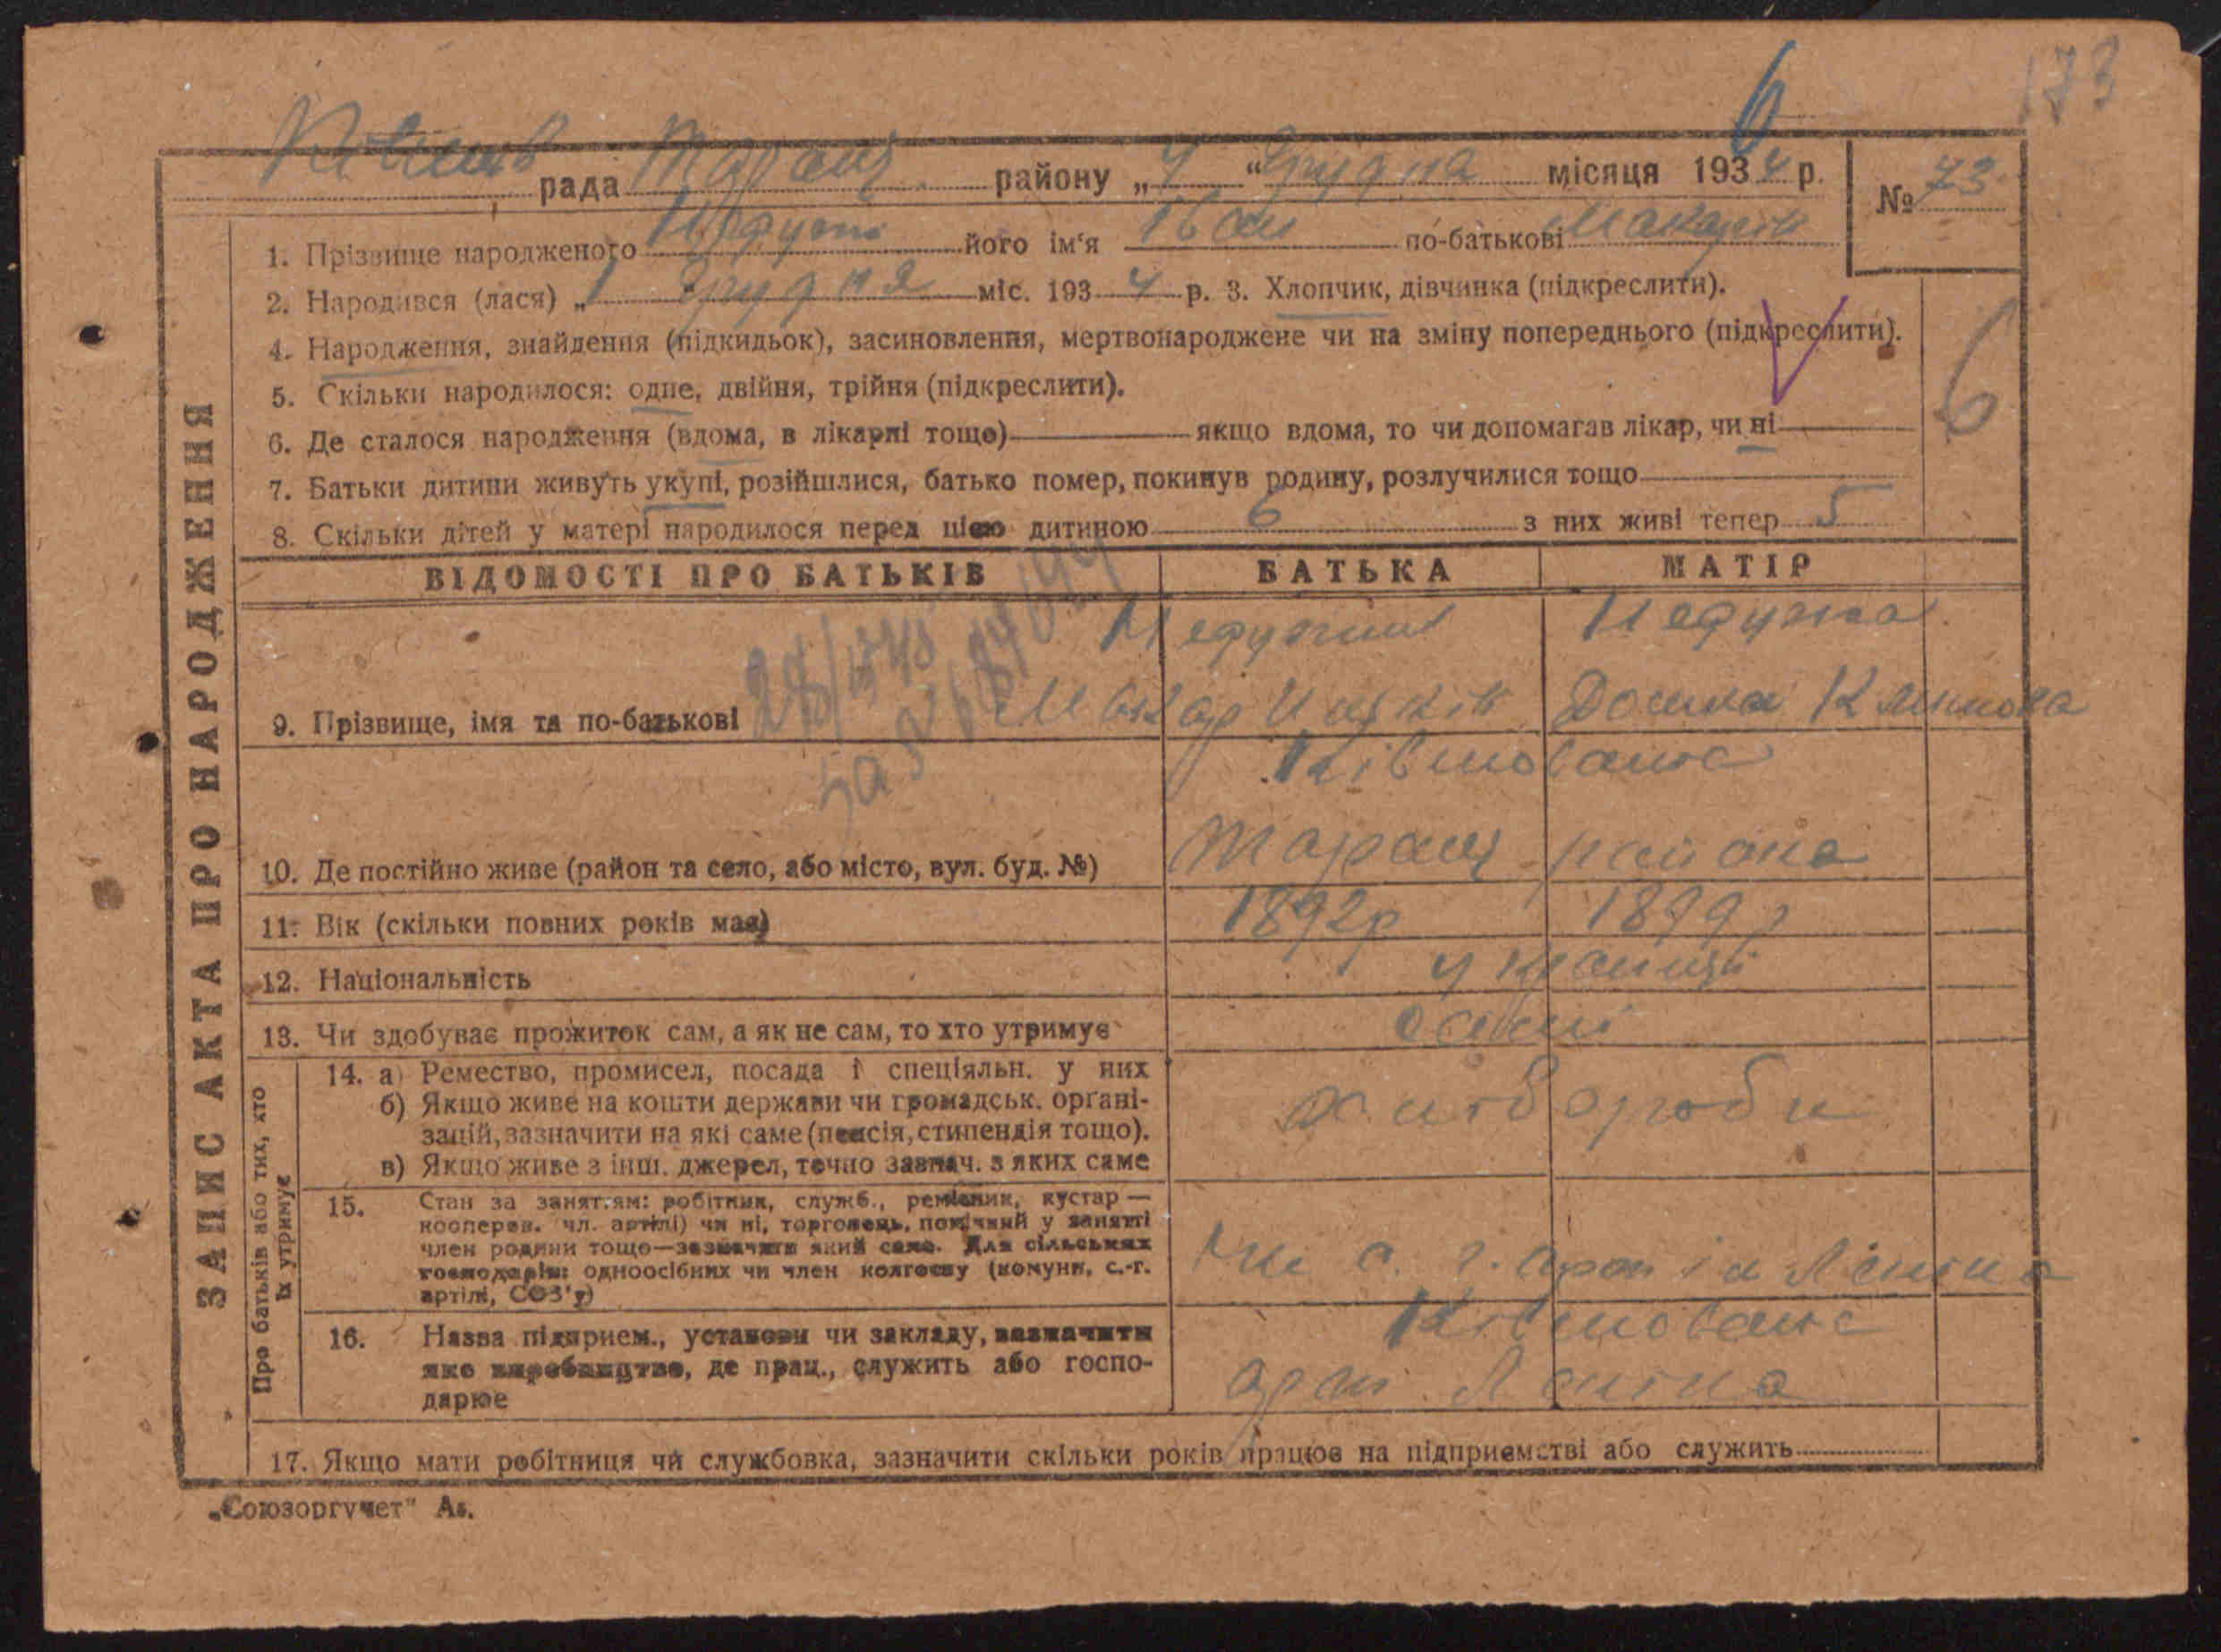 173
6
рада Таращ. району „4“ Грудня місяця 1934 р.
№ 73
1. Прізвище народженого його ім'я Іван по-батькові Макарів
2. Народився (лася) „1 Грудня міс. 1934 р. 3. Хлопчик, дівчинка (підкреслити).
4. Народження, знайдення (підкидьок), засиновлення, мертвонароджене чи на зміну попереднього (підкреслити).
5. Скільки народилося: одне, двійня, трійня (підкреслити).
6. Де сталося народження (вдома, в лікарні тощо) якщо вдома, то чи допомагав лікар, чи ні
6
7. Батьки дитини живуть укупі, розійшлися, батько помер, покинув родину, розлучилися тощо
8. Скільки дітей у матері народилося перед цією дитиною 6 з них живі тепер 5
ЗАПИС АКТА ПРО НАРОДЖЕННЯ
ВІДОМОСТІ ПРО БАТЬКІВ БАТЬКА МАТІР
Недужий Недужа
9. Прізвище, імя та по-батькові Макар Домка Климова
Ківшовата
10. Де постійно живе (район та село, або місто, вул. буд. №) Таращ района
11. Вік (скільки повних років має) 1892р 1899р
12. Національність українці
13. Чи здобуває прожиток сам, а як не сам, то хто утримує самі
Про батьків або тих, хто
їх утримує
14. а) Ремество, промисел, посада і спеціяльн. у них
б) Якщо живе на кошти держави чи громадськ. органі-
зацій, зазначити на які саме (пенсія, стипендія тощо).
в) Якщо живе з інш. джерел, точно зазнач. з яких саме
хлібороби
15. Стан за заняттям: робітник, служб., ремісник, кустар —
кооперов. чл. артілі) чи ні, торговець, помічний у занятті
член родини тощо—зазначити який саме. Для сільських
господарів: одноосібник чи член колгоспу (комуни, с.-г.
артілі, СОЗ'у)
чле с. г. арт ім Леніна
16. Назва підприєм., установи чи закладу, зазначити
яке виробництво, де прац., служить або госпо-
дарює
Ківшовата
арт. Леніна
17. Якщо мати робітниця чи службовка, зазначити скільки років працює на підприємстві або служить
„Союзоргучет"